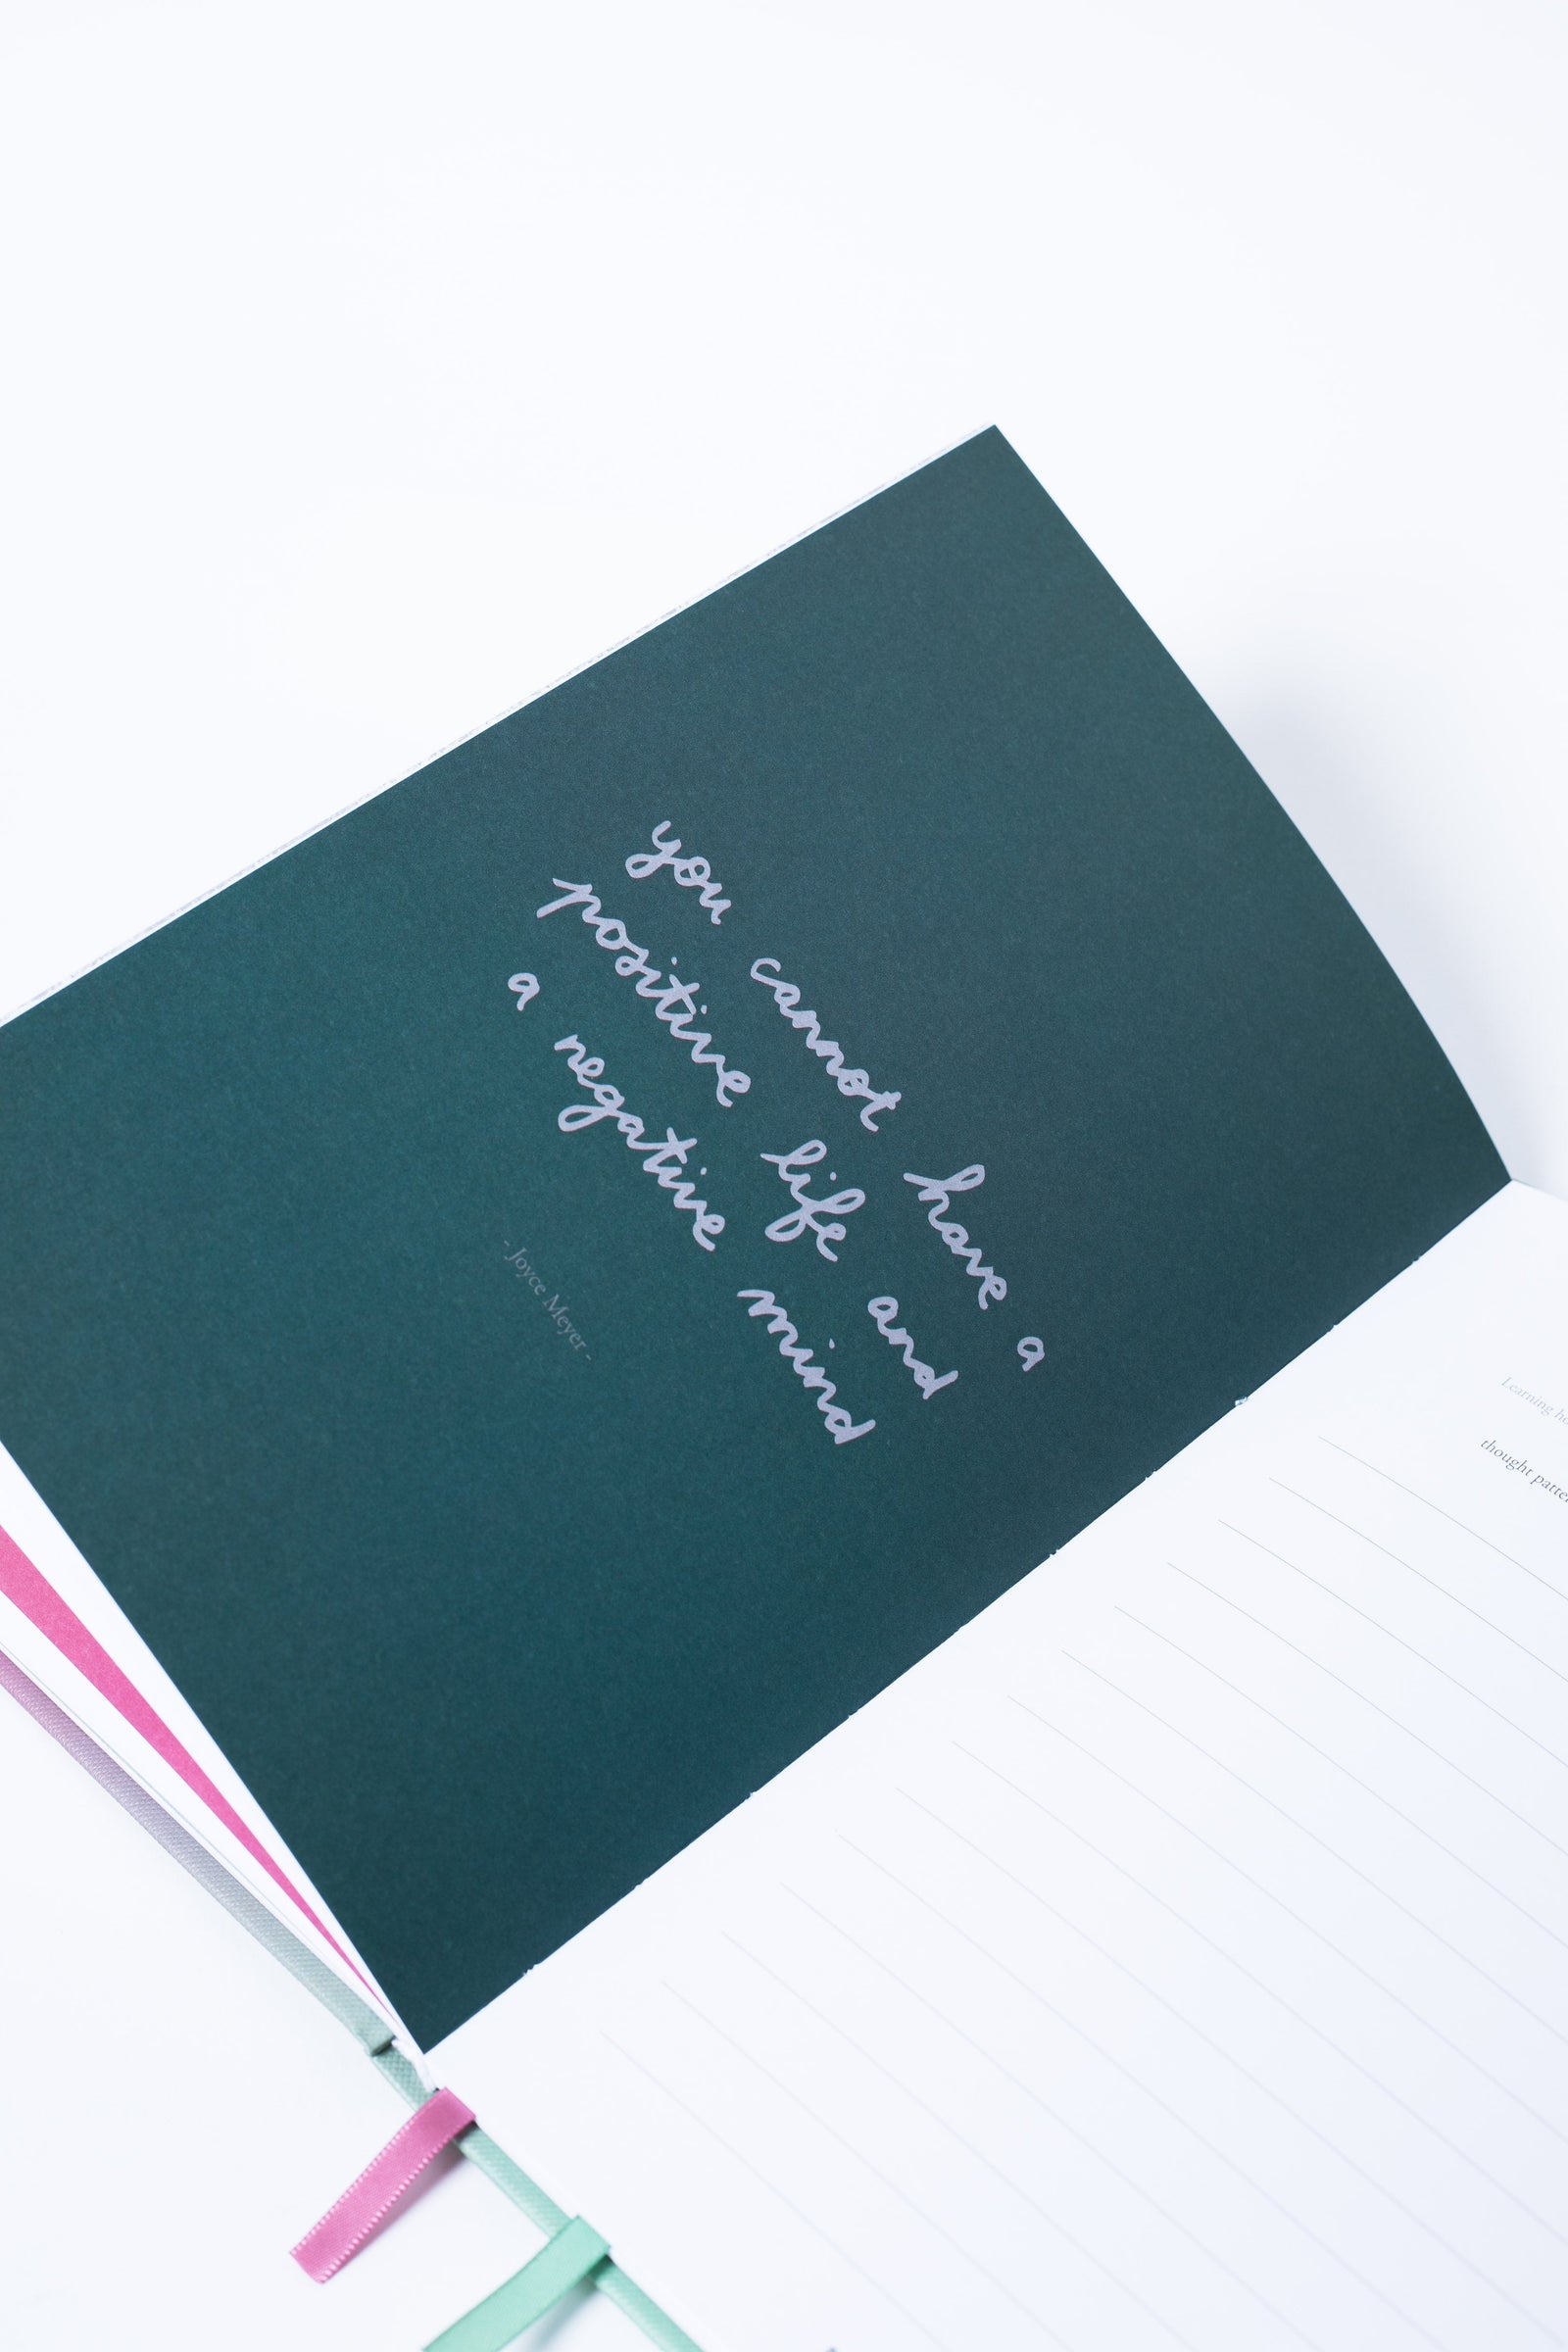 you cannot have a
positive life and
a negative mind
- Joyce Meyer -
Learning
thought